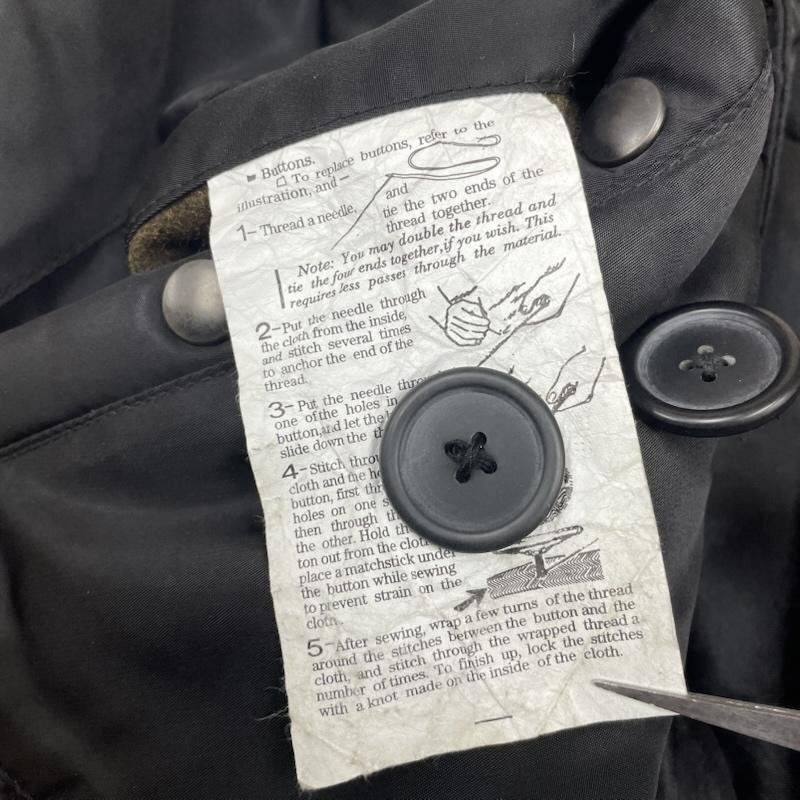 Buttons.
To replace buttons, refer to the
illustration, and–
1– Thread a needle, and
tie the two ends of the
thread together.
Note: You may double the thread and
tie the four ends together, if you wish. This
requires less passes through the material.
2–Put the needle through
the cloth from the inside,
and stitch several times
to anchor the end of the
thread.
3– Put the needle
one of the holes in
button, and let the
slide down the
4–Stitch
cloth and the
button, first
holes on one
then through
the other. Hold
ton out from the
place a matchstick under
the button while sewing
to prevent strain on the
cloth.
5–After sewing, wrap a few turns of the thread
around the stitches between the button and the
cloth, and stitch through the wrapped thread a
number of times. To finish up, lock the stitches
with a knot made on the inside of the cloth.